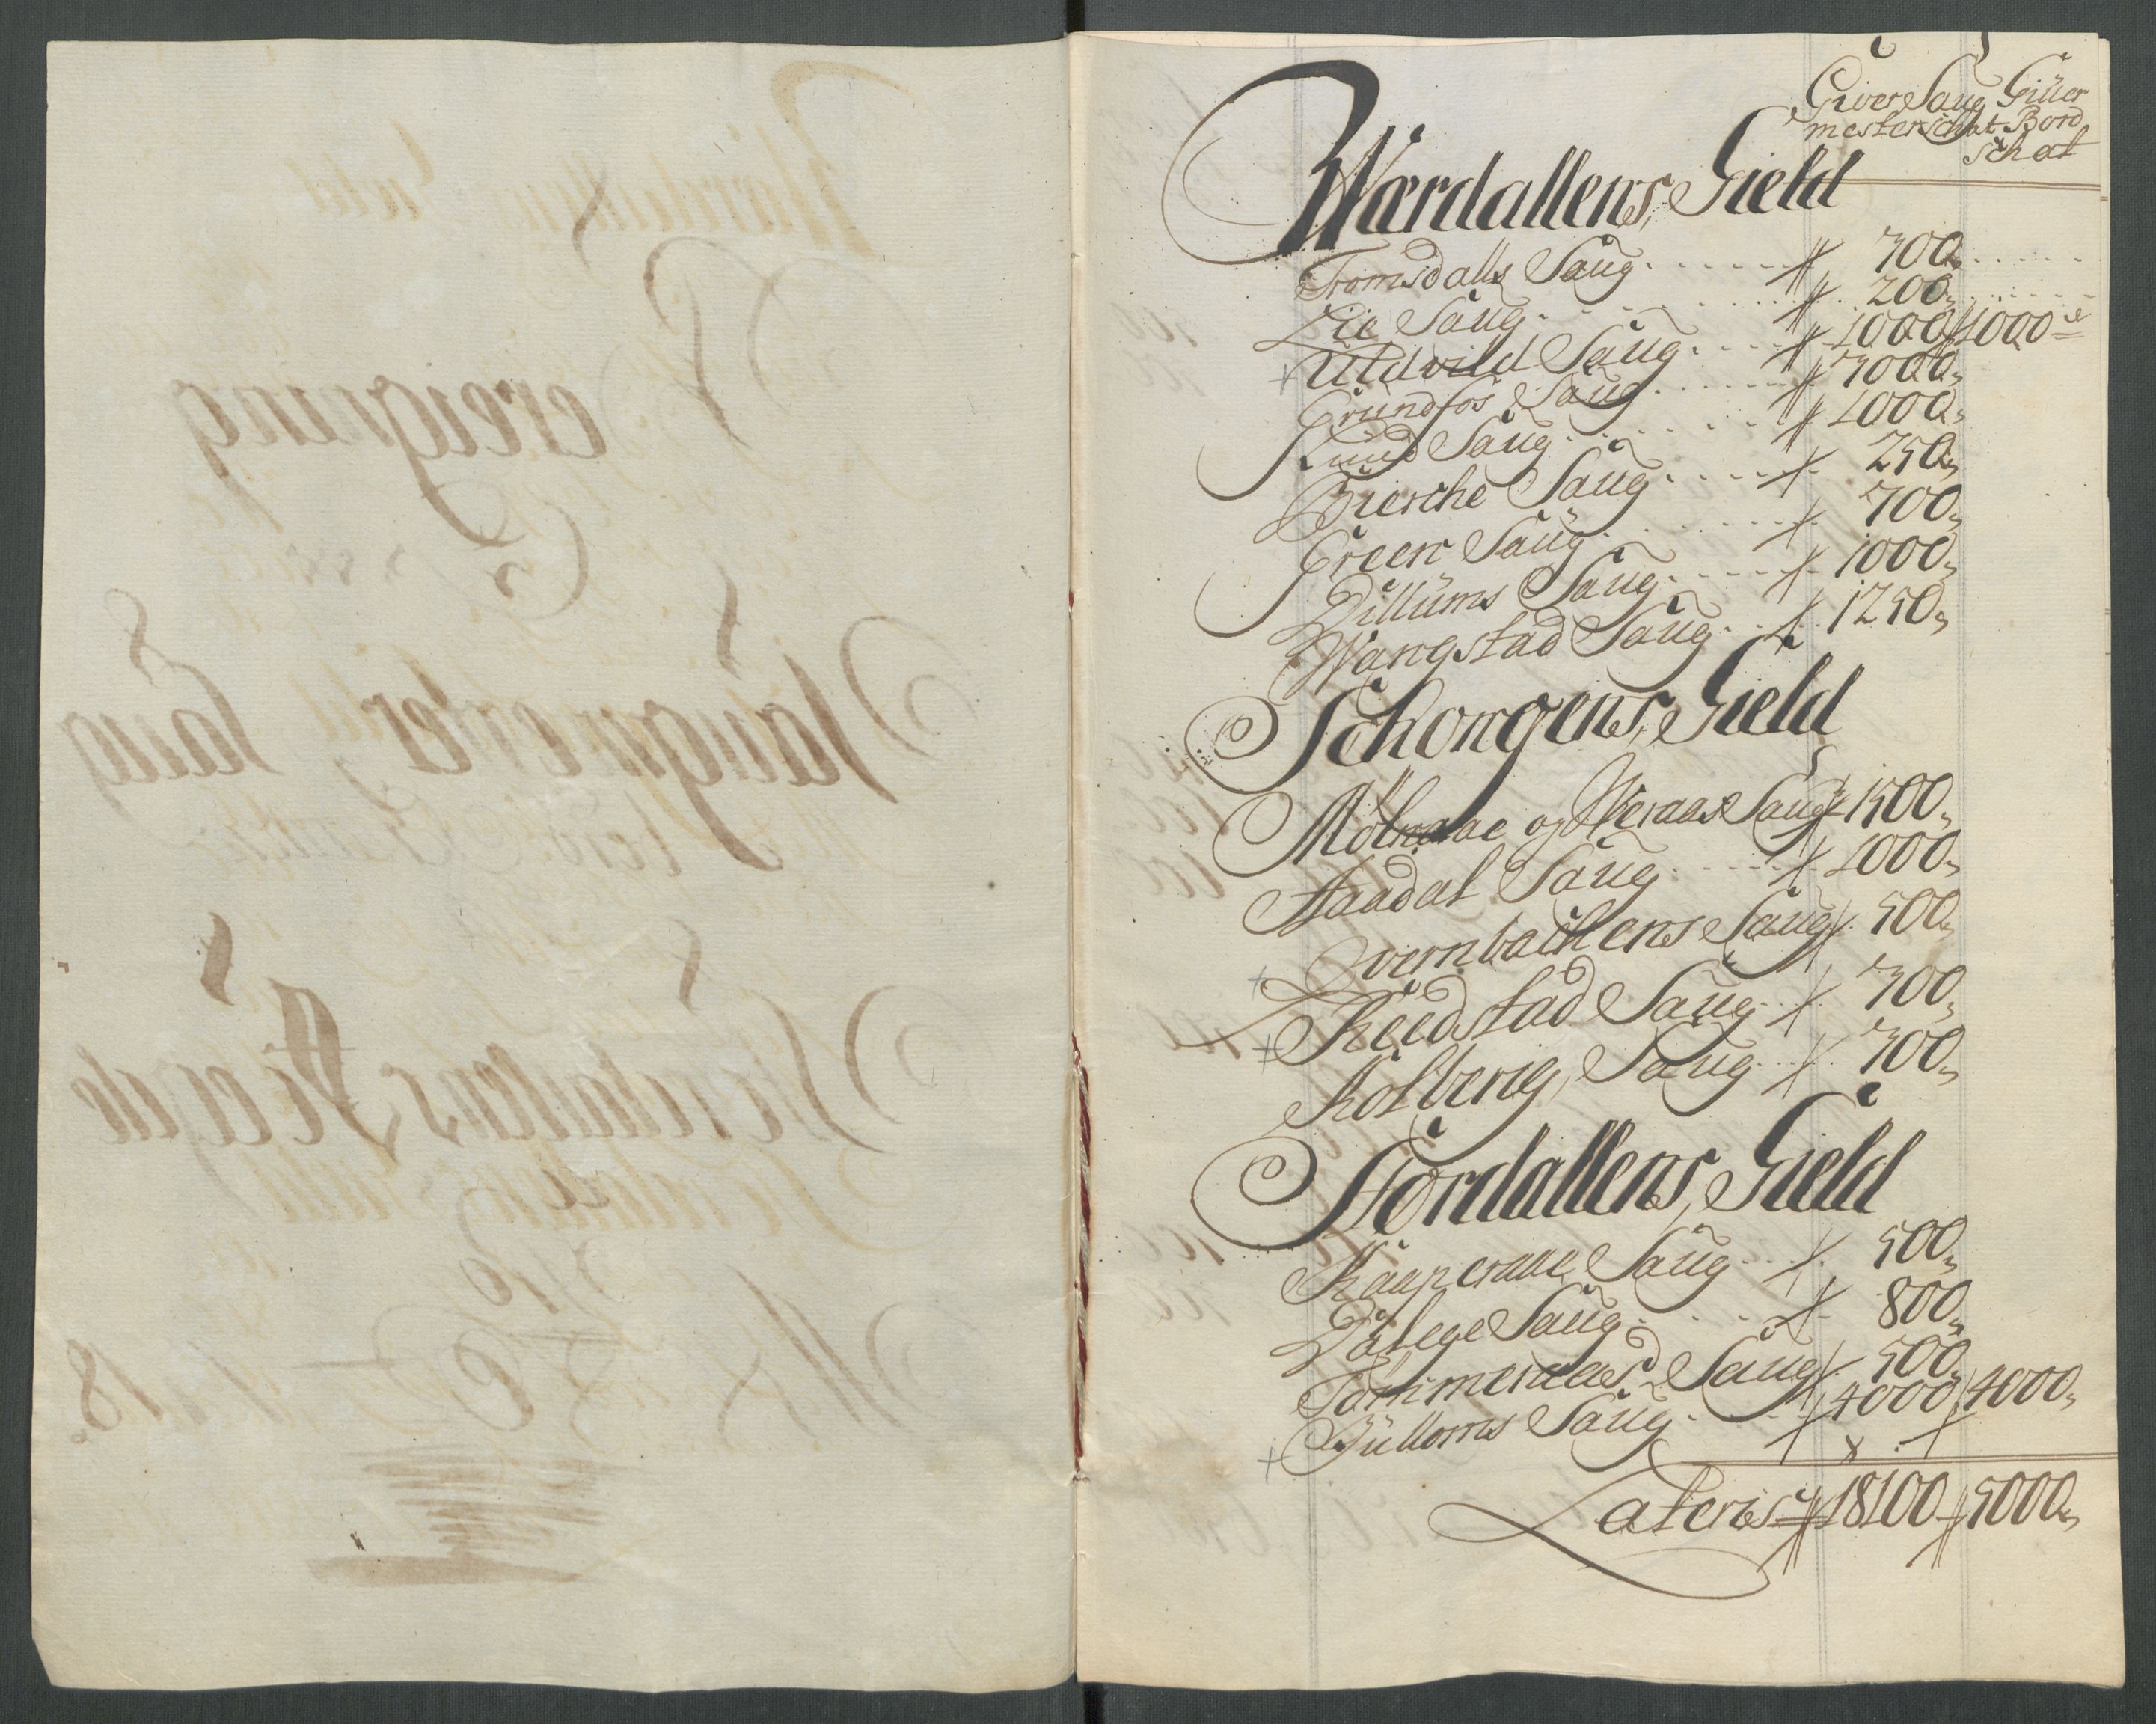 Giver Saug Giüer
mesterschat Bord
schat
Wærdallens Gield
Tromsdalls Saug 300
Lie Saug 200
Uldvild Saug 1000 1000
Grundfos Saug 3000
Sund Saug 1000
Bierche Saug 250
Green Saug 700
Dillums Saug 1000
Wangstad Saug 1250
Schongens Gield
Molnaae og Weraas Saug 1500
Aaadal Saug 1000
Qvernbachens Saug 500
Reedstad Saug 300
Kolberig Saug 300
Størdallens Gield
Kaaperaae Saug 500
Dalege Saug 800
Tømmeraas Saug 500
Gulloms Saug 4000 4000
Lateris 18100 5000